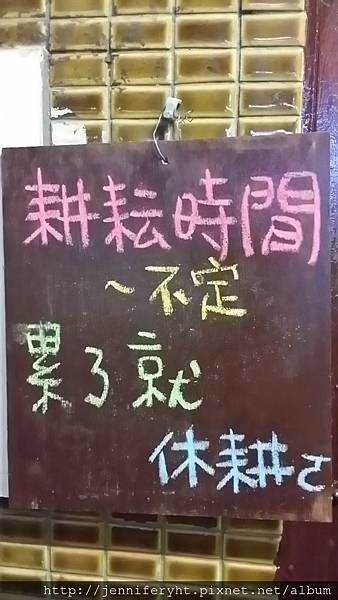 耕耘時間
~不定
累了就
休耕さ
http://jenniferyht.pixnet.net/album